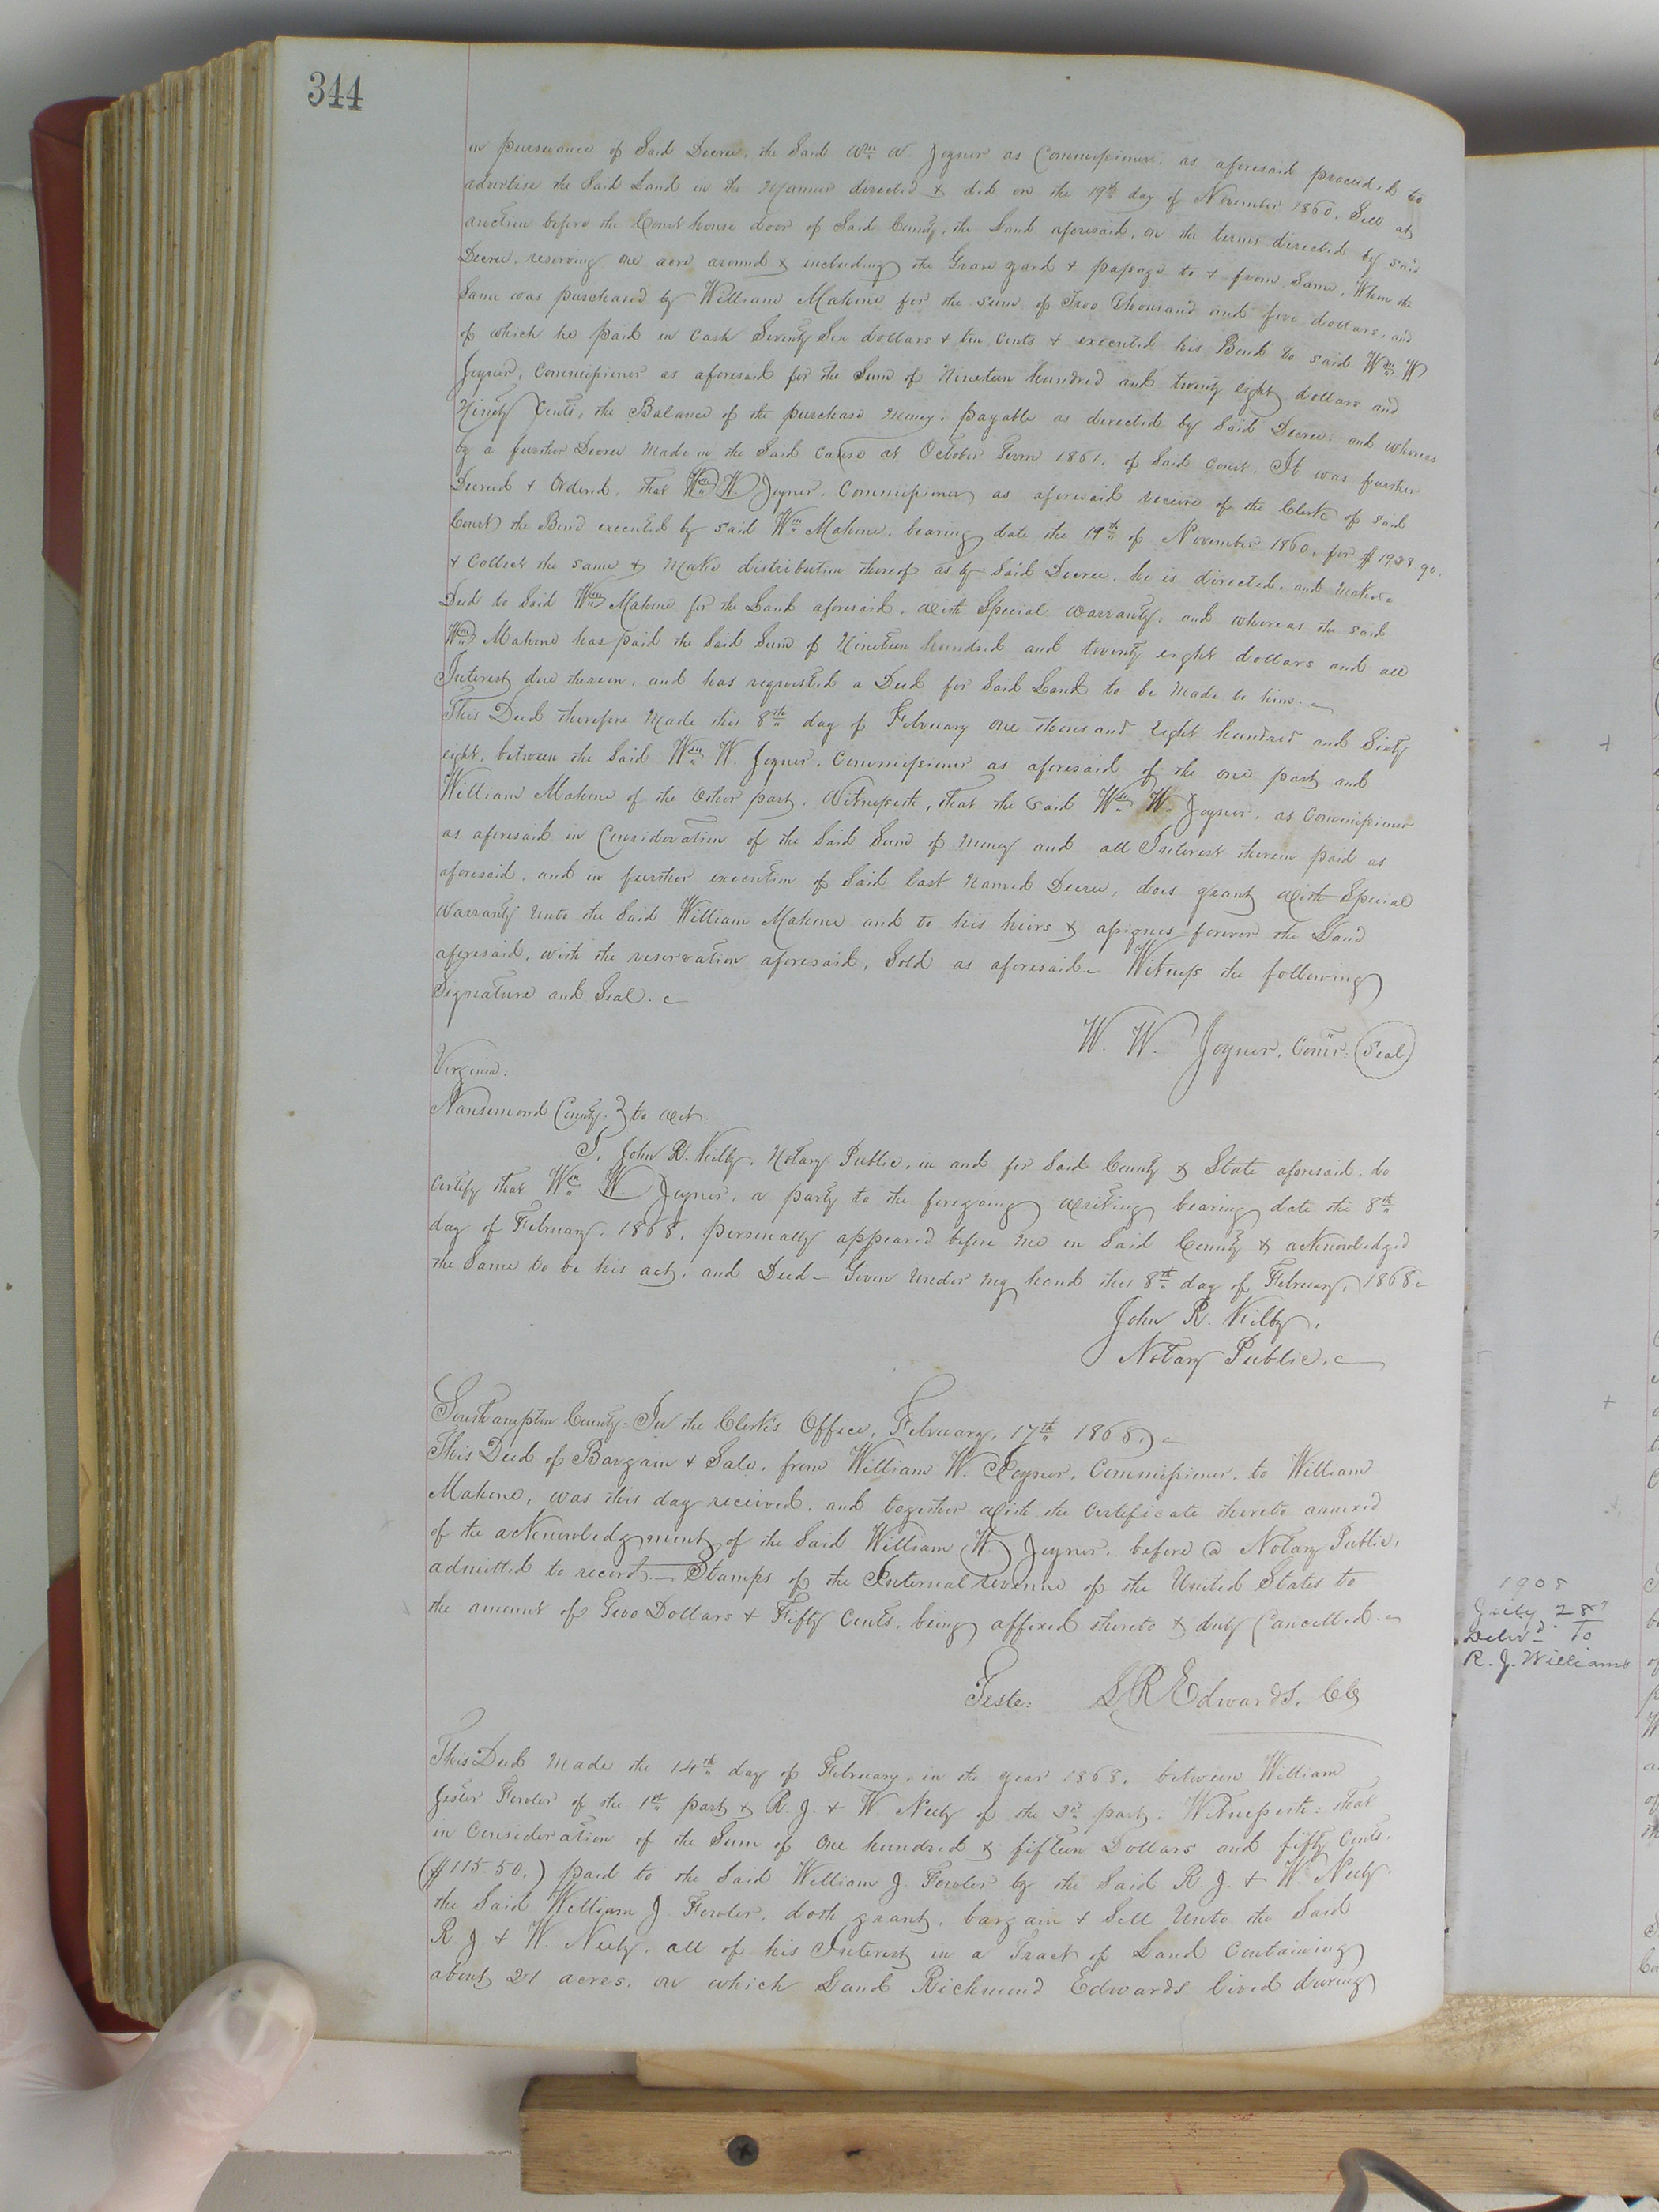 344
in pursuance of Said Decree, the Said Wm W. Joyner as Commissioner, as aforesaid proceeded to
advertise the Said Land in the Manner directed & did on the 19th day of November 1860, Sell at
auction before the Court house door of Said County, the Land aforesaid, on the terms directed by said
Decree, reserving one acre around & including the Grave yard & passage to & from Same, When the
Same was purchased by William Mahone for the sum of Two Thousand and five dollars, and
of which he paid in Cash Seventy Six dollars & ten Cents & executed his Bond to said Wm W
Joyner, Commissioner as aforesaid for the Sum of Nineteen hundred and twenty eight dollars and
Ninety Cents, the Balance of the purchase Money, payable as directed by Said Decree: and whereas
by a further Decree Made in the Said Cause at October Term 1861, of Said Court, It was further
Decreed & Ordered, that Wm W Joyner, Commissioner as aforesaid receive of the Clerk of said
Court the Bond executed by said Wm Mahone, bearing date the 19th of November 1860, for $1928.90.
& Collect the same & Make distribution thereof as by Said Decree, he is directed, and Make a
Deed to Said Wm Mahone for the Land aforesaid, with Special Warranty: and whereas the said
Wm Mahone has paid the Said Sum of Nineteen hundred and twenty eight dollars and all
Interest due thereon, and has requested a Deed for Said Land to be Made to him.
This Deed therefore Made this 8th day of February One thousand Eight hundred and Sixty
eight, between the Said Wm W. Joyner, Commissioner as aforesaid of the one part and
William Mahone of the Other part, Witnesseth, that the Said Wm W. Joyner, as Commissioner
as aforesaid in Consideration of the Said Sum of Money and all Interest thereon paid as
aforesaid, and in further execution of Said last Named Decree, does grant with Special
Warranty Unto the Said William Mahone and to his heirs & assignes forever the Land
aforesaid, with the reservation aforesaid, Sold as aforesaid. Witness the following
Signature and Seal.
W. W. Joyner, Comr. (Seal)
Virginia:
Nansemond County, } to wit:
I, John R. Kilby, Notary Public, in and for Said County & State aforesaid, do
certify that Wm W. Joyner, a party to the foregoing writing bearing date the 8th
day of February, 1868, personally appeared before me in Said County & acknowledged
the Same to be his act, and Deed – Given Under My hand this 8th day of February, 1868.
John R. Kilby,
Notary Public.
Southampton County: In the Clerk's Office, February, 17th 1868.
This Deed of Bargain & Sale, from William W. Joyner, Commissioner, to William
Mahone, was this day received, and together with the Certificate thereto annexed
of the acknowledgment of the Said William W. Joyner, before a Notary Public,
admitted to record. – Stamps of the Internal revenue of the United States to
the amount of Two Dollars & Fifty Cents, being affixed thereto & duly Cancelled.
Teste: L R Edwards, CC
This Deed Made the 14th day of February, in the year 1868, between William
Jester Fowler of the 1st part & R. J. & W. Neely of the 2d part: Witnesseth: that
in Consideration of the Sum of One hundred & fifteen Dollars and fifty Cents,
($115.50.) paid to the Said William J. Fowler by the Said R. J. & W. Neely
the Said William J. Fowler, doth grant, bargain & Sell Unto the Said
R. J. & W. Neely, all of his Interest in a Tract of Land Containing
about 21 acres, on which Land Richmond Edwards lived during
1908
July 28
Deliv'd to
R. J. Williams